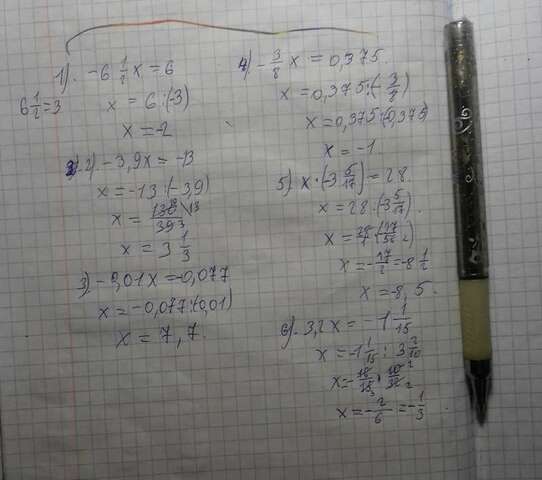 1). -6 1/2 x = 6
6 1/2 = 3
x = 6:(-3)
x = -2
2). -3,9x = -13
x = -13:(-3,9)
x = 130/39 3 \13
x = 3 1/3
3). -0,01x = -0,077
x = -0,077:(0,01)
x = 7,7.
4). -3/8 x = 0,375.
x = 0,375:(-3/8)
x = 0,375:(0,375)
x = -1
5) x·(-3 5/17) = 28.
x = 28:(-3 5/17).
x = 28/1·(17/56 2)
x = -17/2 = -8 1/2
x = -8,5.
6). 3,2x = -1 1/15
x = -1 1/15 : 3 2/10
x = -16/15 3 · 10 2/32 2
x = -2/6 = -1/3